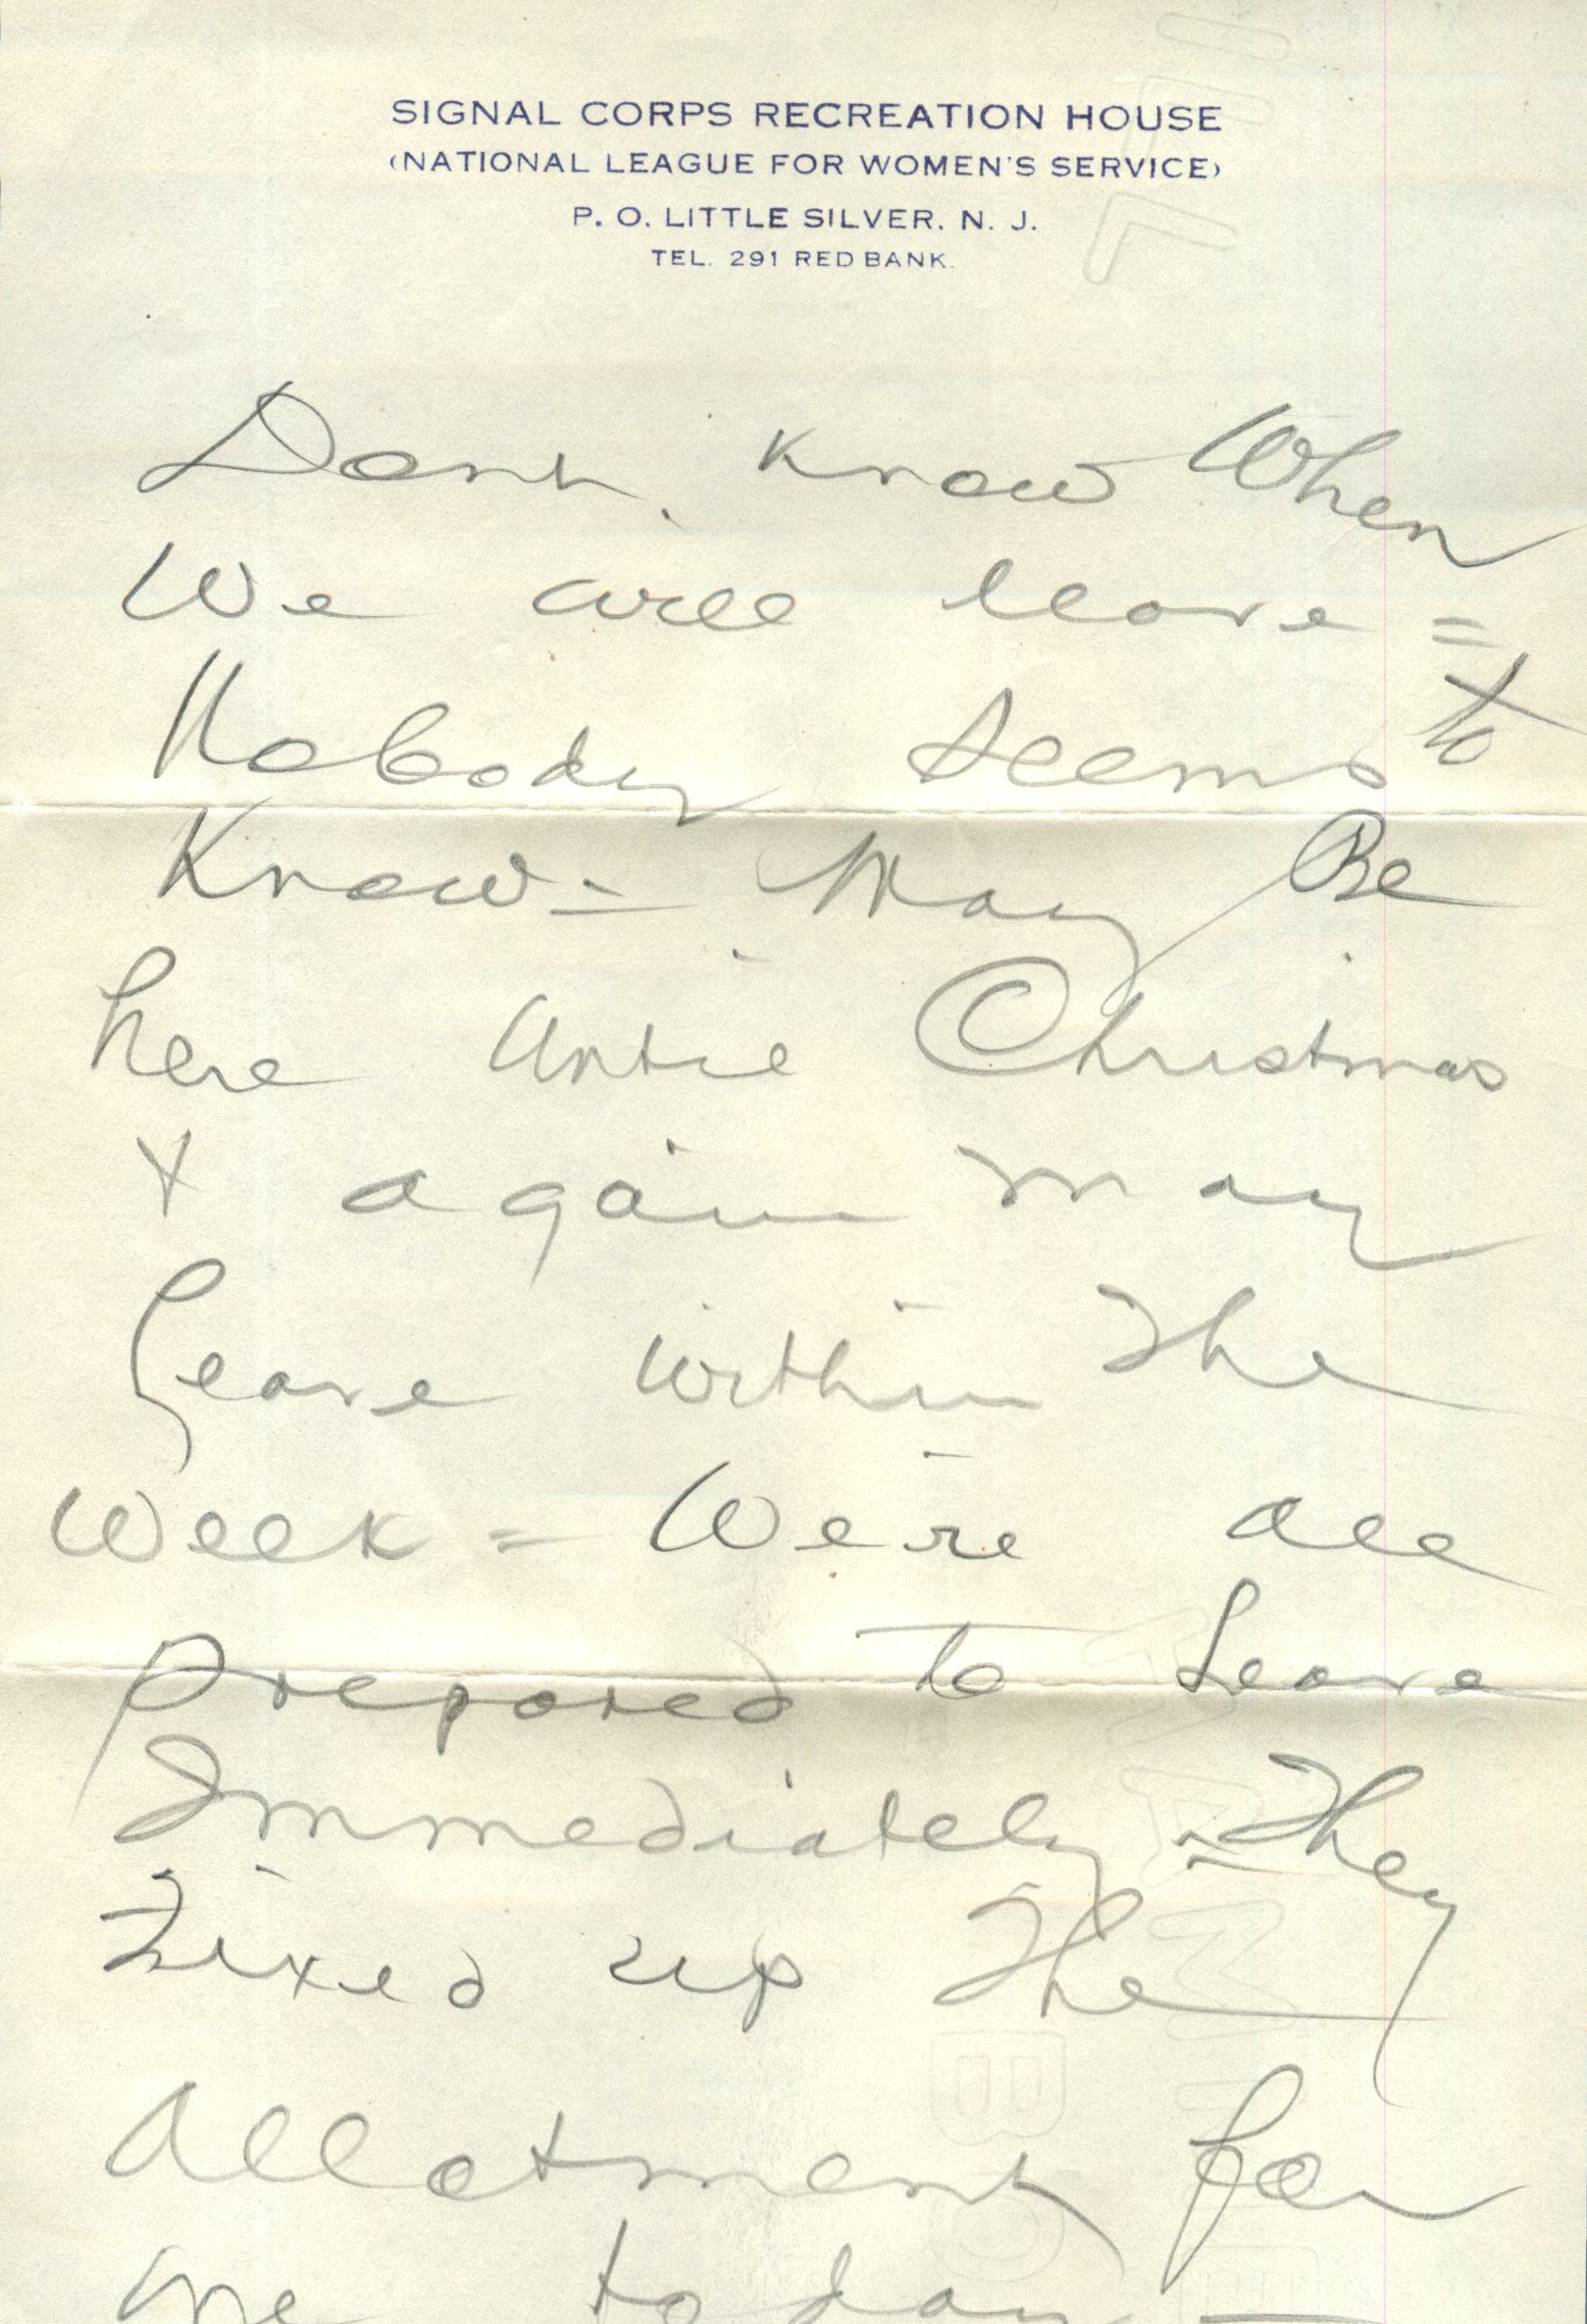 SIGNAL CORPS RECREATION HOUSE
(NATIONAL LEAGUE FOR WOMEN'S SERVICE)
P. O. LITTLE SILVER, N. J.
TEL. 291 RED BANK.
Dont know When
We will leave =
Nobody seems to
Know = May Be
here until Christmas
& again may
Leave within The
Week = We're all
prepared to Leave
Immediately = They
Fixed up The
Allotment for
me today